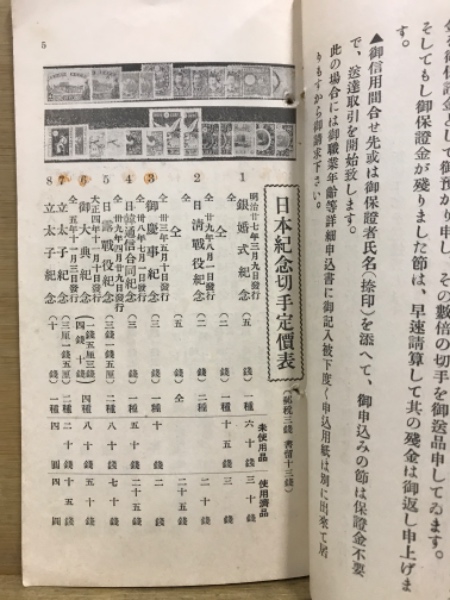 金を保證金として御預かり申し、その數倍の切手を御送品申してゐます。
そしてもし御保證金が殘りました節は、早速請算して其の殘金は御返し申上げま
す。
▲御信用間合せ先或は御保證者氏名(捺印)を添へて、御申込みの節は保證金不要
で、送達取引を開始致します。
此の場合には御職業年齡等詳細申込書に御記入被下度く申込用紙は別に出來て居
りますから御請求下さい。
5
日本紀念切手定價表
(郵税三錢 書留十三錢)
未使用品 使用濟品
明治廿七年三月九日發行
1 銀婚式紀念 (五錢)一種 六十錢 三十錢
仝 (二錢)一種 十五錢 三錢
仝廿九年八月一日發行
2 日清戰役紀念 (二錢)二種 二十錢
仝 (五錢)仝 二十五錢
仝卅三年五月十日發行
3 御慶事紀念 (三錢)一種 十錢 二錢
仝卅八年七月一日發行
4 日韓通信合同紀念 (三錢)一種 五十錢 二十五錢
仝卅九年四月廿九日發行
5 日露戰役紀念 (三錢一錢五厘)二種 八十錢 七十錢
大正四年十一月十日發行
6 御大典紀念 (一錢五厘三錢四錢十錢)四種 八十錢 五十錢
仝五年十一月三日發行
7 立太子紀念 (三厘一錢五厘)二種 二十錢 十五錢
8 立太子紀念 (十錢)一種 四圓 四圓